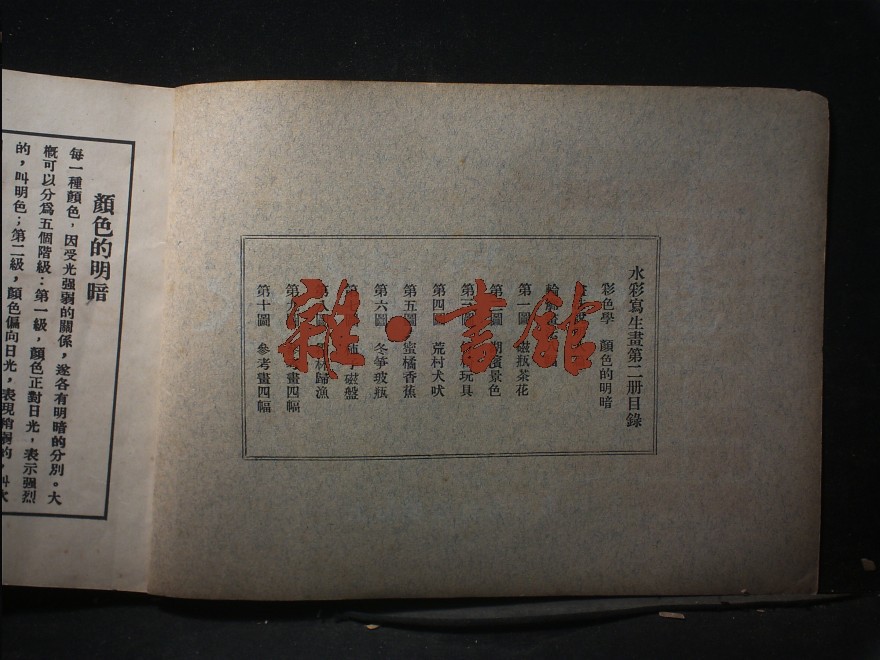 水彩寫生畫第二册目錄
彩色學 顏色的明暗
第一圖 磁瓶茶花
第二圖 湖濱景色
第三圖 玩具
第四圖 荒村犬吠
第五圖 蜜橘香蕉
第六圖 冬笋玻瓶
第 磁盤
第 歸漁
第九 畫四幅
第十圖 參考畫四幅
雜·書館
顏色的明暗
每一種顏色，因受光强弱的關係，遂各有明暗的分別。大
概可以分爲五個階級：第一級，顏色正對日光，表示强烈
的，叫明色；第二級，顏色偏向日光，表現稍弱的，叫次